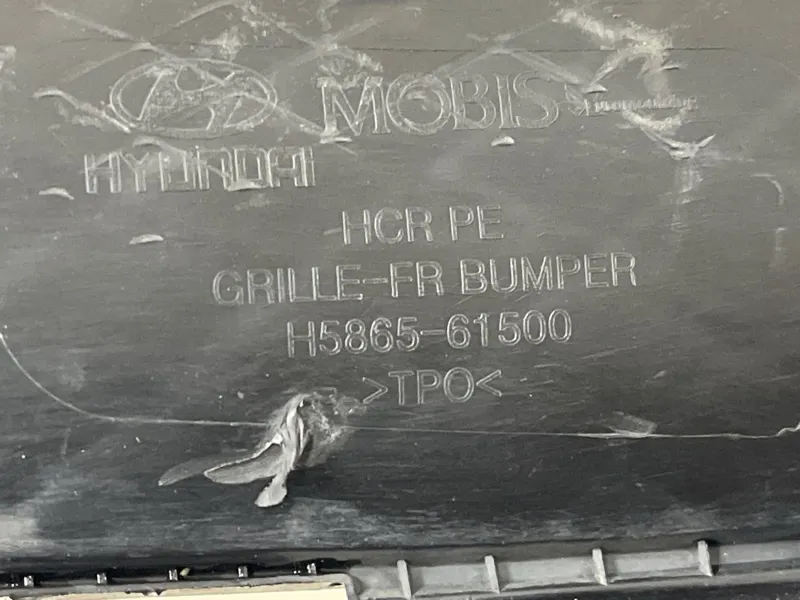 MOBIS
HYUNDAI
HCR PE
GRILLE-FR BUMPER
H5865-61500
>TPO<